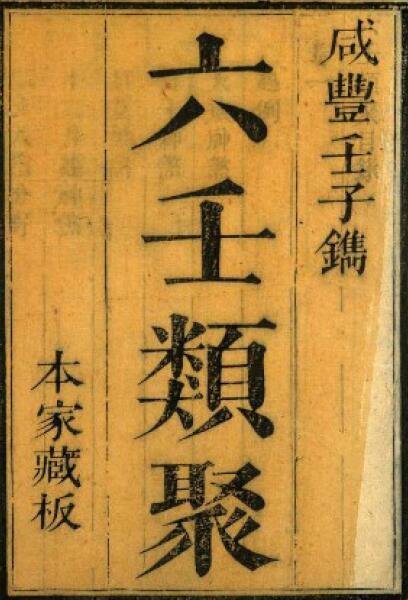 咸豐壬子鐫
六壬類聚
本家藏板